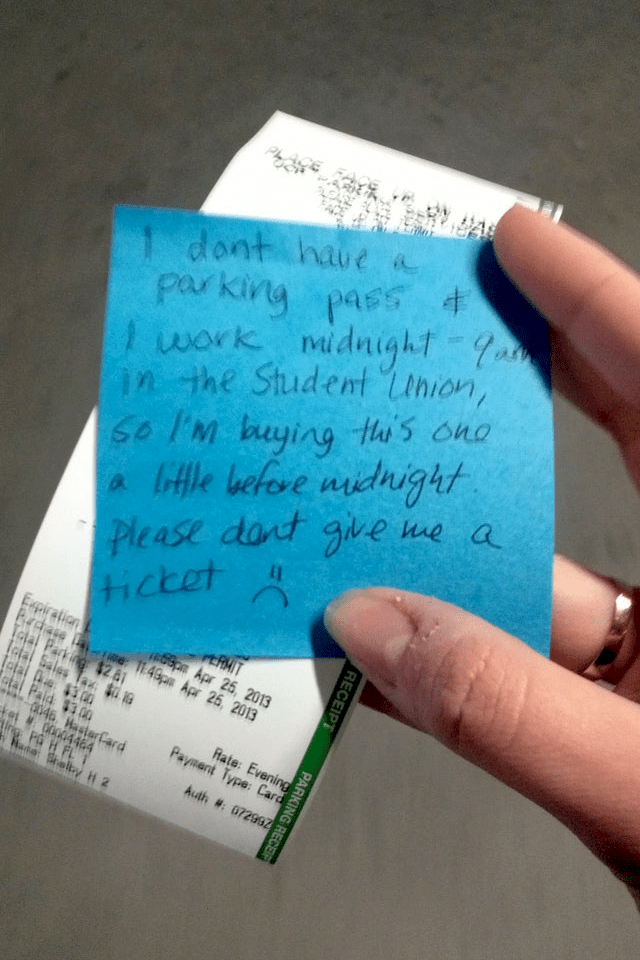 PLACE FACE UP ON DASH
I dont have a
parking pass &
I work midnight - 9am
in the Student Union,
so I'm buying this one
a little before midnight.
please dont give me a
ticket :(
Expiration
11:59pm Apr 26, 2013
Purchase 11:49pm Apr 25, 2013
Total Parking: $2.81
Total Sales Tax: $0.19
Total Due: $3.00
Total Paid: $3.00
MasterCard
Rate: Evening
Payment Type: Card
Auth #: 07299Z
Name: Shelby H 2
RECEIPT
PARKING RECEIPT